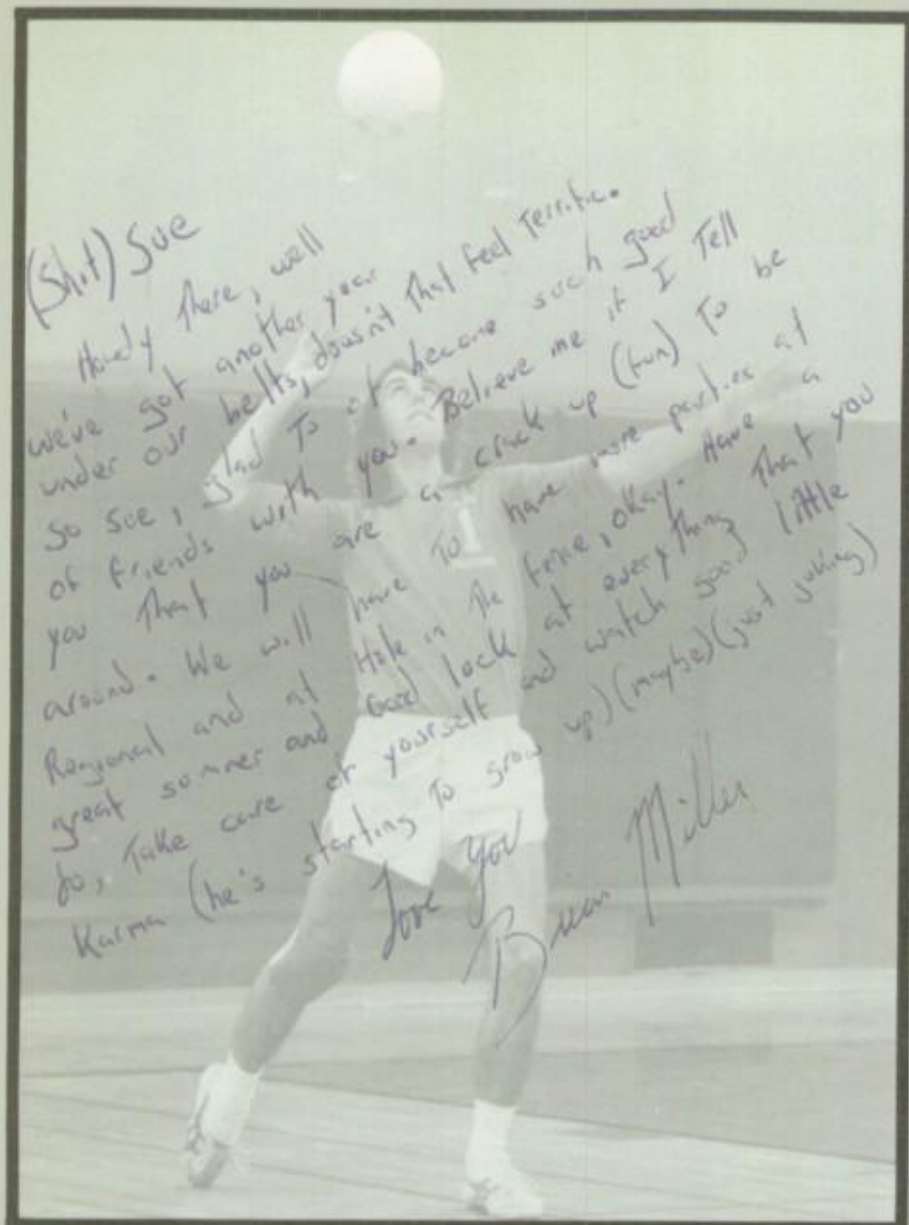 (Shit) Sue
Howdy There, well
we've got another year
under our belts, doesn't That feel Terrific.
So Sue, glad To of become such good
of friends with you. Believe me if I Tell
you That you are a crack up (fun) To be
around. We will have To have more parties at
Regional and at Hole in The fence, okay. Have a
great summer and Good luck at everything That you
do, Take care of yourself and watch good little
Karma (he's starting To grow up) (maybe) (just joking)
Love You
Brian Miller
1